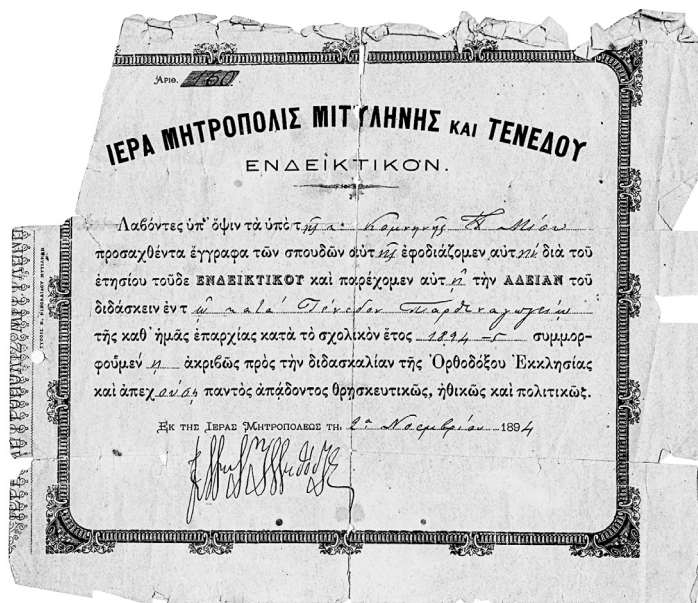 Ἀριθ. 160
ΙΕΡΑ ΜΗΤΡΟΠΟΛΙΣ ΜΙΤΥΛΗΝΗΣ ΚΑΙ ΤΕΝΕΔΟΥ
ΕΝΔΕΙΚΤΙΚΟΝ.
Λαβόντες ὑπ' ὄψιν τὰ ὑπὸ τῆς κ. Κομνηνῆς
προσαχθέντα ἔγγραφα τῶν σπουδῶν αὐτῆς ἐφοδιάζομεν αὐτὴν διὰ τοῦ
ἐτησίου τοῦδε ΕΝΔΕΙΚΤΙΚΟΥ καὶ παρέχομεν αὐτῇ τὴν ΑΔΕΙΑΝ τοῦ
διδάσκειν ἐν τῷ κατὰ Τένεδον Παρθεναγωγείῳ
τῆς καθ' ἡμᾶς ἐπαρχίας κατὰ τὸ σχολικὸν ἔτος 1894-5 συμμορ-
φουμένῃ ἀκριβῶς πρὸς τὴν διδασκαλίαν τῆς Ὀρθοδόξου Ἐκκλησίας
καὶ ἀπεχούσῃ παντὸς ἀπᾴδοντος θρησκευτικῶς, ἠθικῶς καὶ πολιτικῶς.
Ἐκ τῆς Ἱερᾶς Μητροπόλεως τῇ 2ᾳ Νοεμβρίου 1894